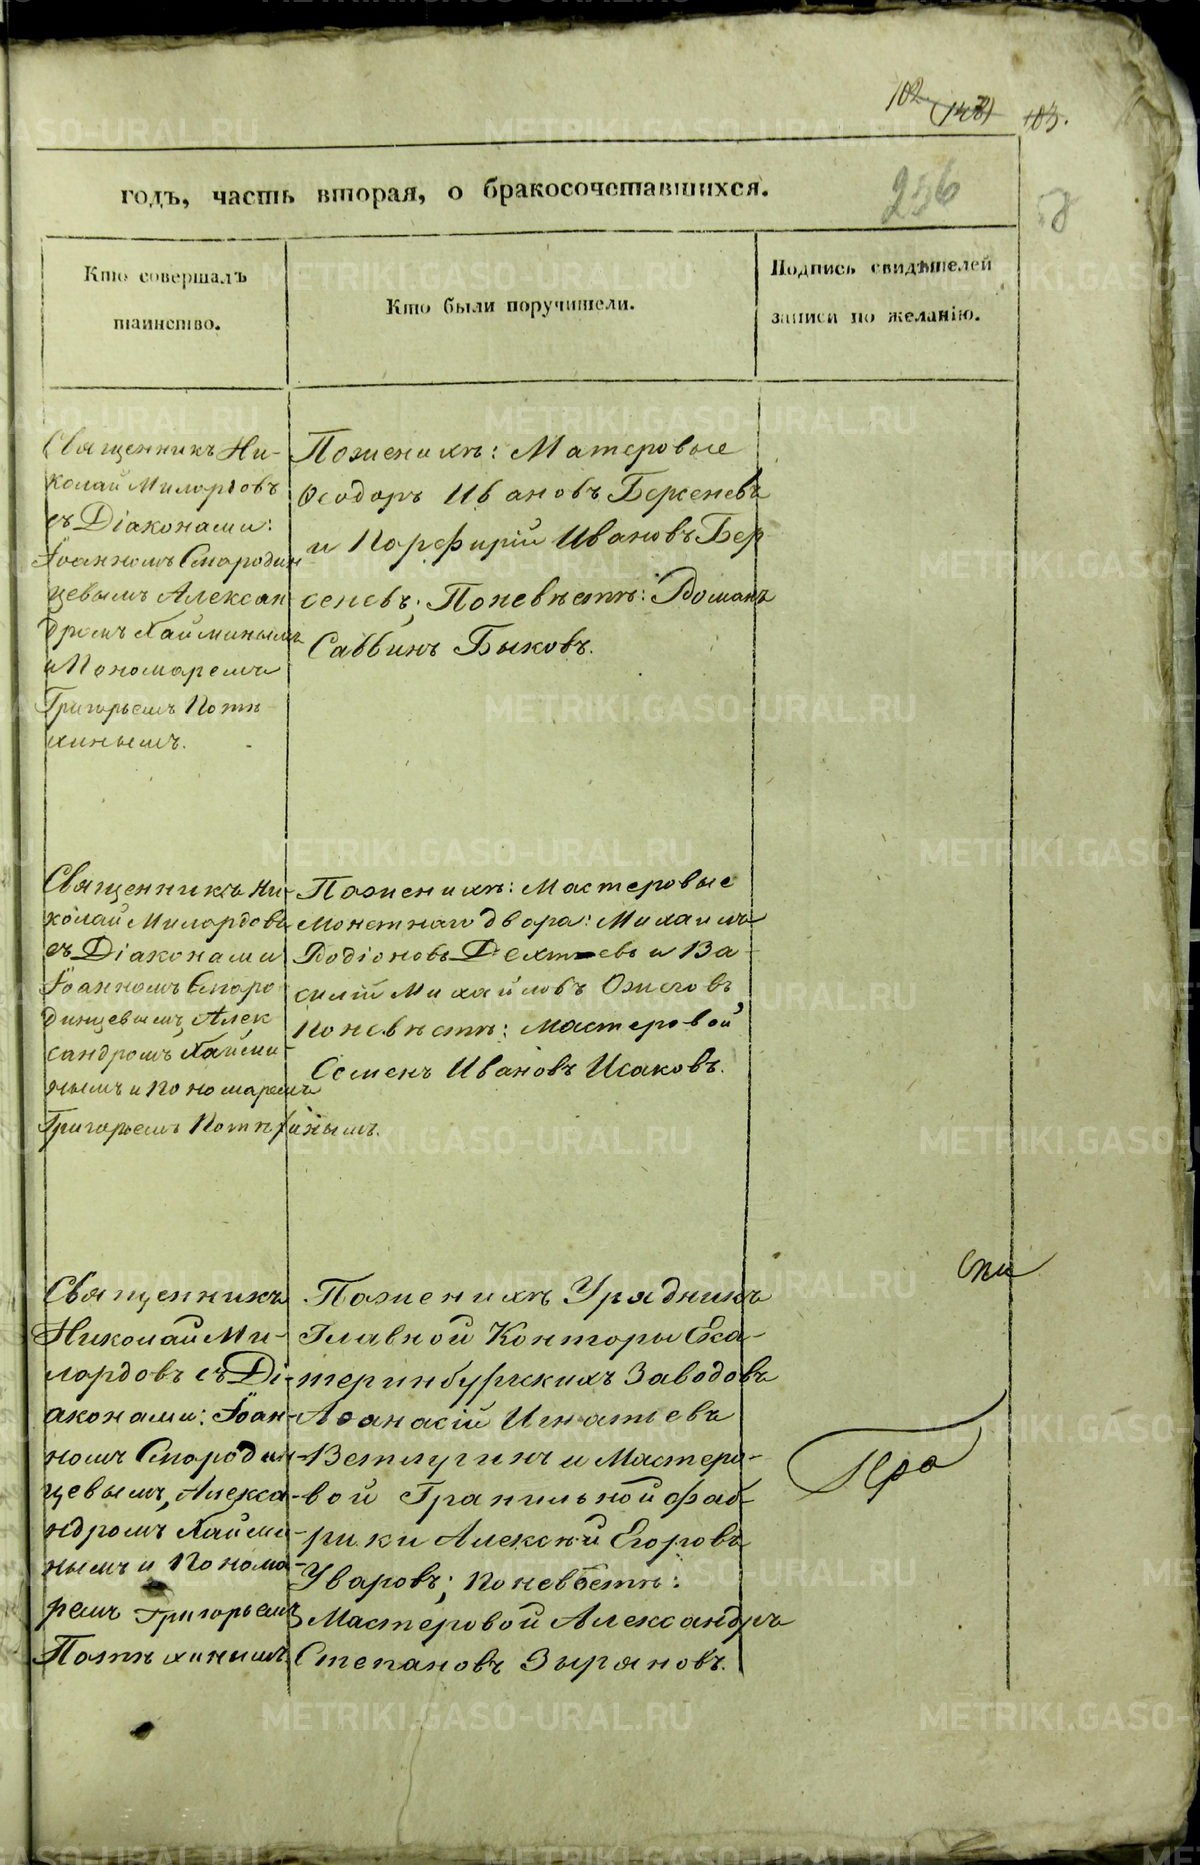 102 (143) 103.
годъ, часть вторая, о бракосочетавшихся.
256
58
Кто совершалъ
таинство.
Кто были поручители.
Подпись свидѣтелей
записи по желанію.
Священникъ Ни-
колай Милордовъ
съ Діаконами:
Іоанномъ Смородин
цевымъ Алексан
дромъ Хайминымъ
и Пономаремъ
Григорьемъ Потѣ-
хинымъ.
Поженихѣ: Матеровые
Ѳеодоръ Ивановъ Берсеневъ
и Порфирій Ивановъ Бер
сеневъ; Поневѣстѣ: Романъ
Саввинъ Быковъ.
Священникъ Ни-
колай Милордовъ
съ Діаконами
Іоанномъ Сморо
динцевымъ, Алек
сандромъ Хайми-
нымъ и Пономаремъ
Григорьемъ Потѣхинымъ.
Поженихѣ: Мастеровые
монетнаго двора: Михаилъ
Родіоновъ Дехтевъ и Ва-
силій Михайловъ Ожеговъ,
поневѣстѣ: мастеровой
Семенъ Ивановъ Исаковъ.
Священникъ
Николай Ми-
лордовъ съ Ді-
аконами: Іоан-
номъ Смородин-
цевымъ, Алекса-
ндромъ Хайми-
нымъ и Понома-
ремъ Григорьемъ
Потѣхинымъ
Поженихѣ Урядникъ
Главной Конторы Ека-
теринбургскихъ Заводовъ
Аѳанасій Игнатьевъ
Ветлугинъ и Мастеро-
вой Гранильной фаб-
рики Алексѣй Егоровъ
Уваровъ; поневѣстѣ:
Мастеровой Александръ
Степановъ Зыряновъ.
Про